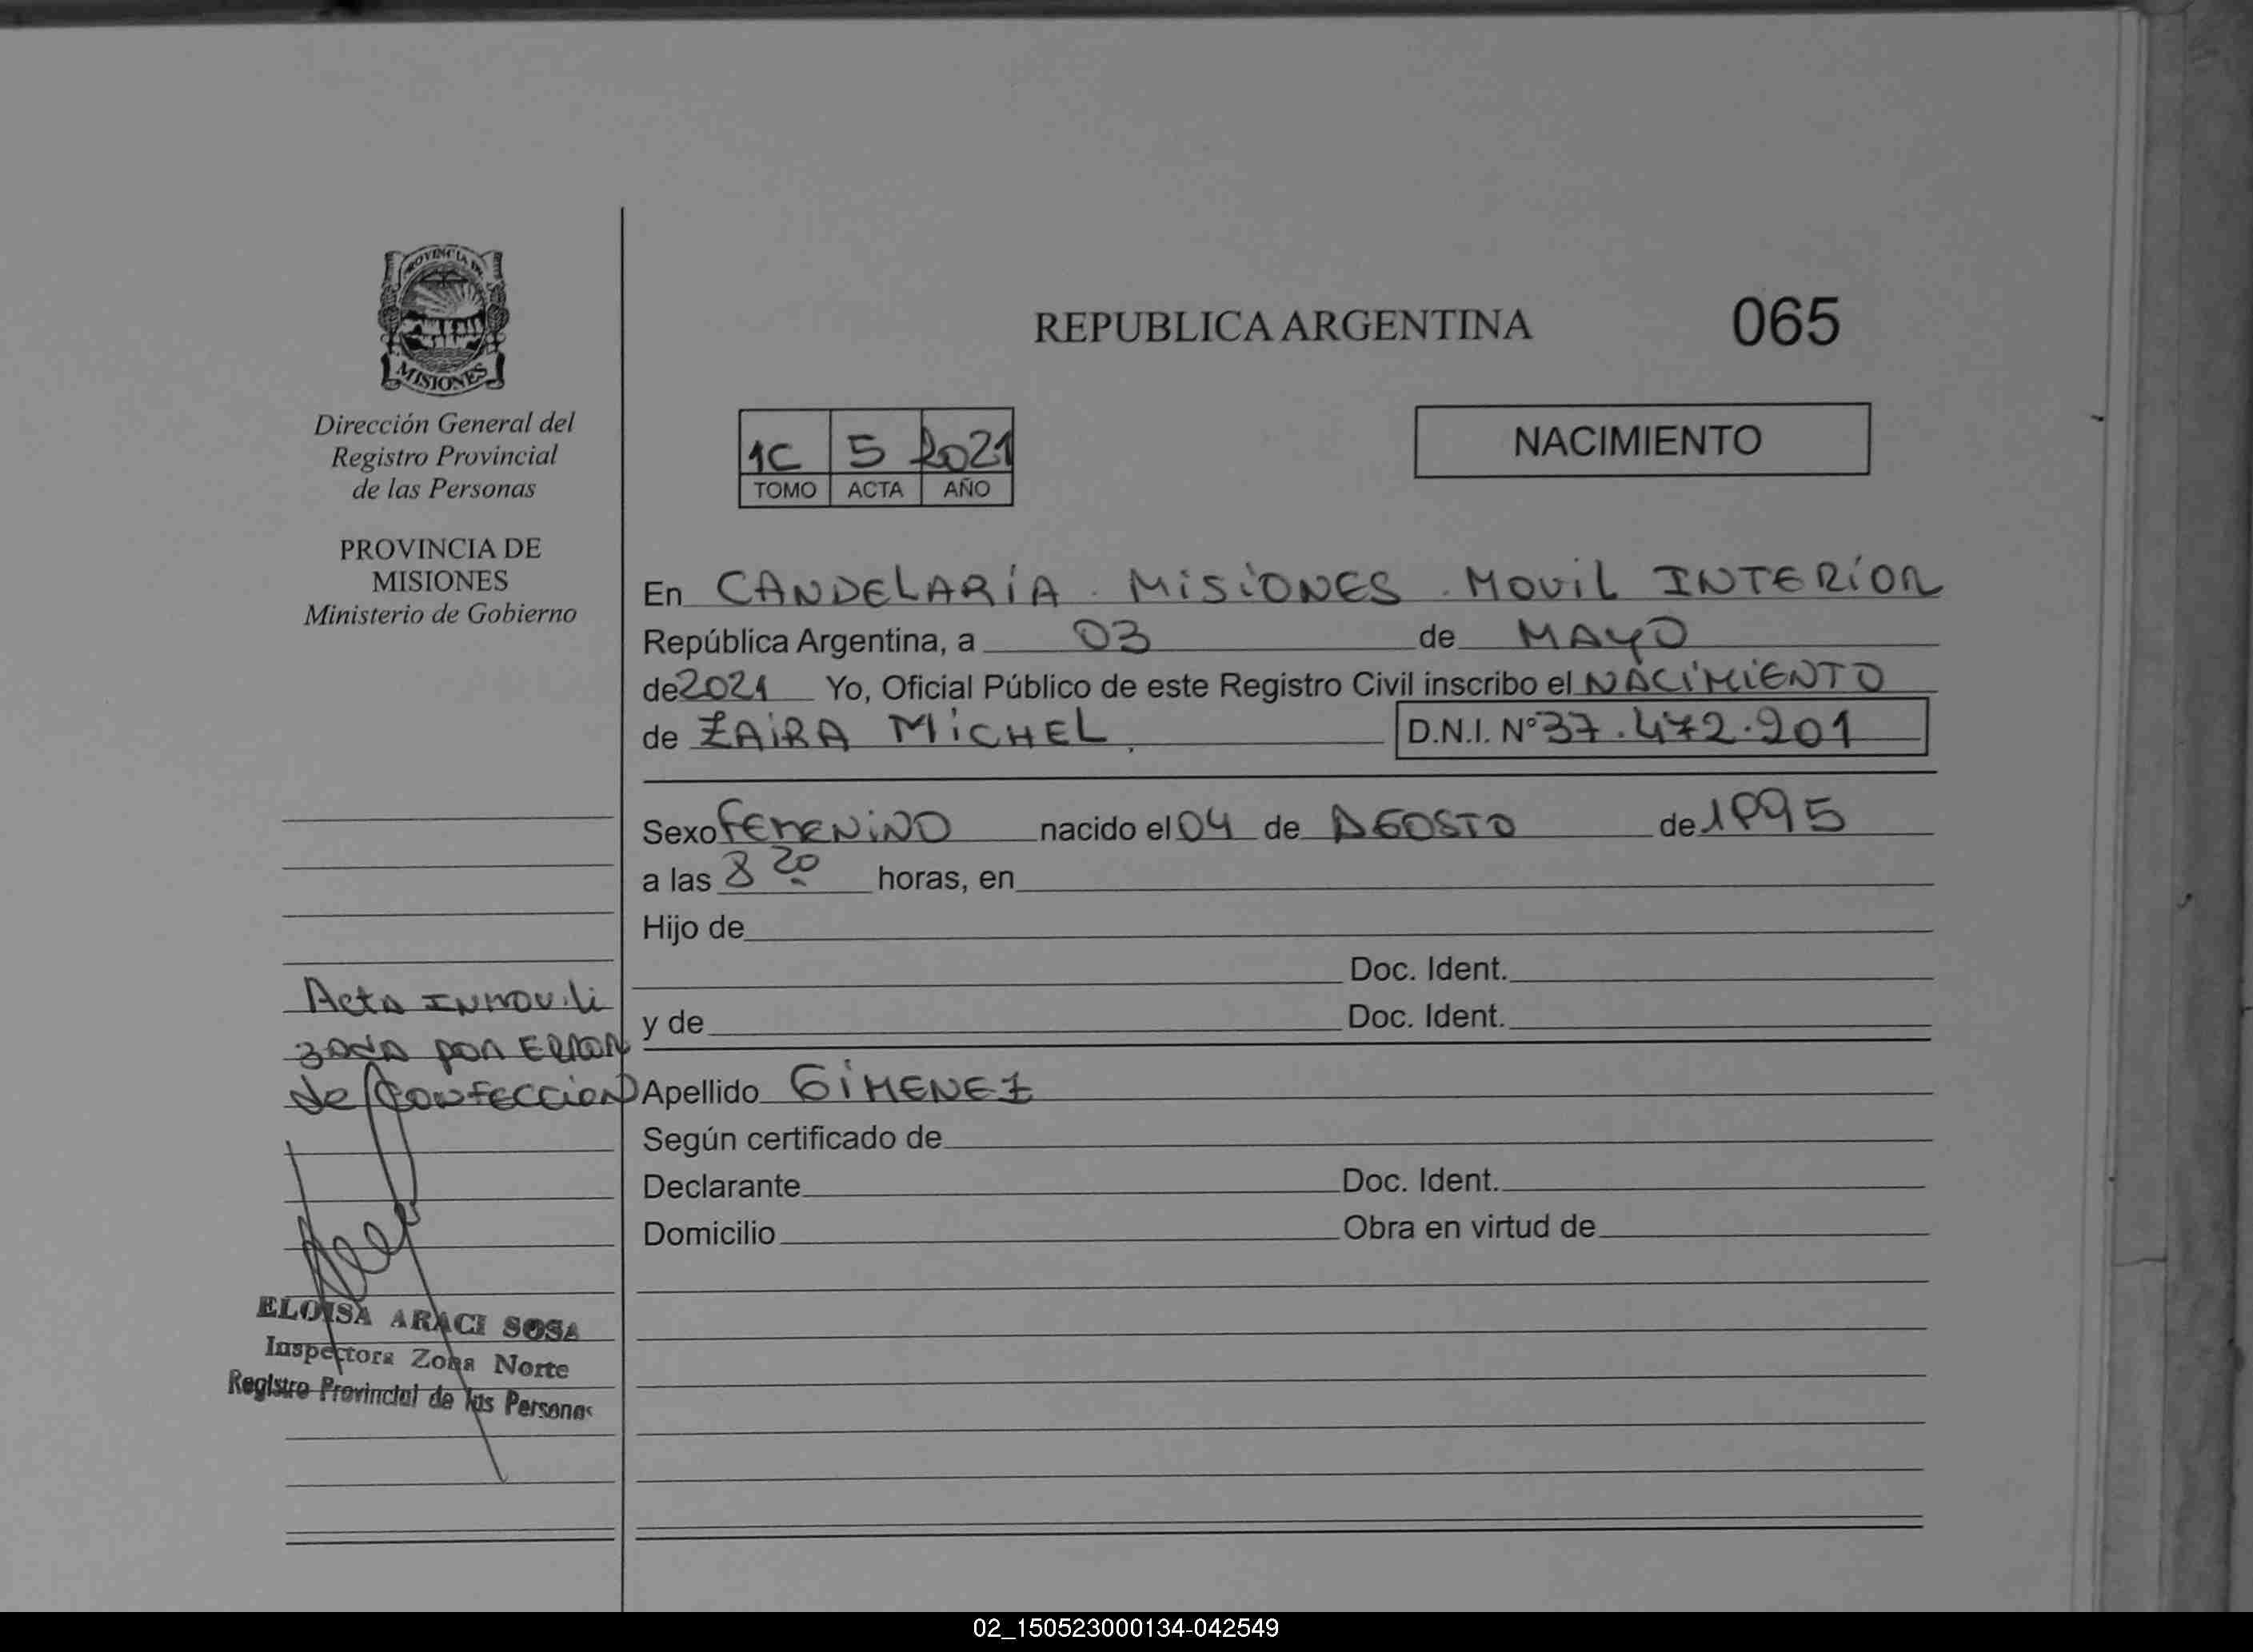 PROVINCIA DE
MISIONES
Dirección General del
Registro Provincial
de las Personas
PROVINCIA DE
MISIONES
Ministerio de Gobierno
REPUBLICA ARGENTINA
065
1C 5 2021
TOMO ACTA AÑO
NACIMIENTO
En CANDELARIA . MISIONES . MOVIL INTERIOR
República Argentina, a 03 de MAYO
de 2021 Yo, Oficial Público de este Registro Civil inscribo el NACIMIENTO
de ZAIRA MICHEL . D.N.I. N° 37.472.201
Sexo FEMENINO nacido el 04 de AGOSTO de 1995
a las 8 20 horas, en
Hijo de
Doc. Ident.
y de Doc. Ident.
Apellido GIMENEZ
Según certificado de
Declarante Doc. Ident.
Domicilio Obra en virtud de
Acta INMOVILI
zada por ERROR
de CONFECCION
ELOISA ARACI SOSA
Inspectora Zona Norte
Registro Provincial de las Personas
02_150523000134-042549